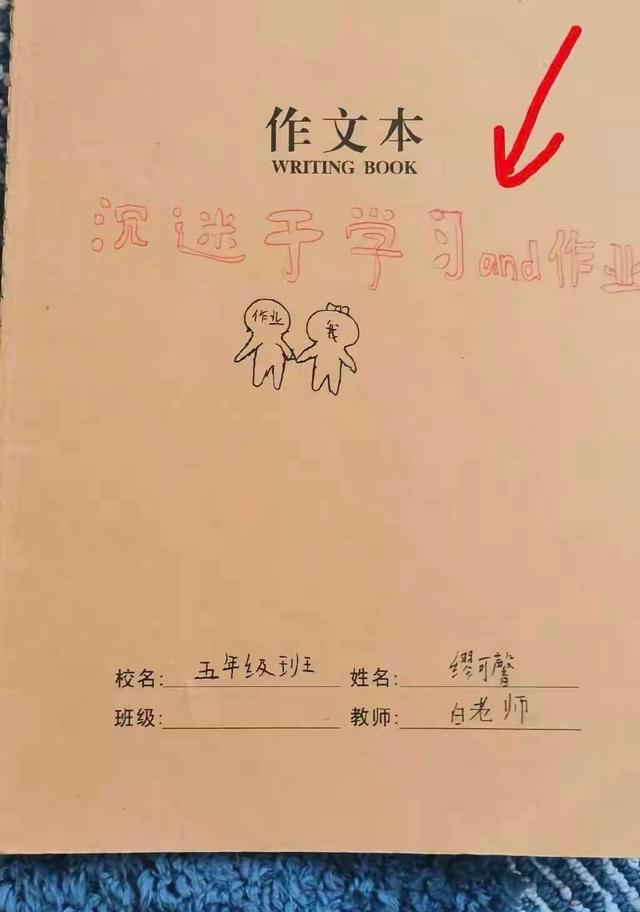 作文本
WRITING BOOK
沉迷于学习and作业
作业 我
校名: 五年级班 姓名: 缪可馨
班级: 教师: 白老师